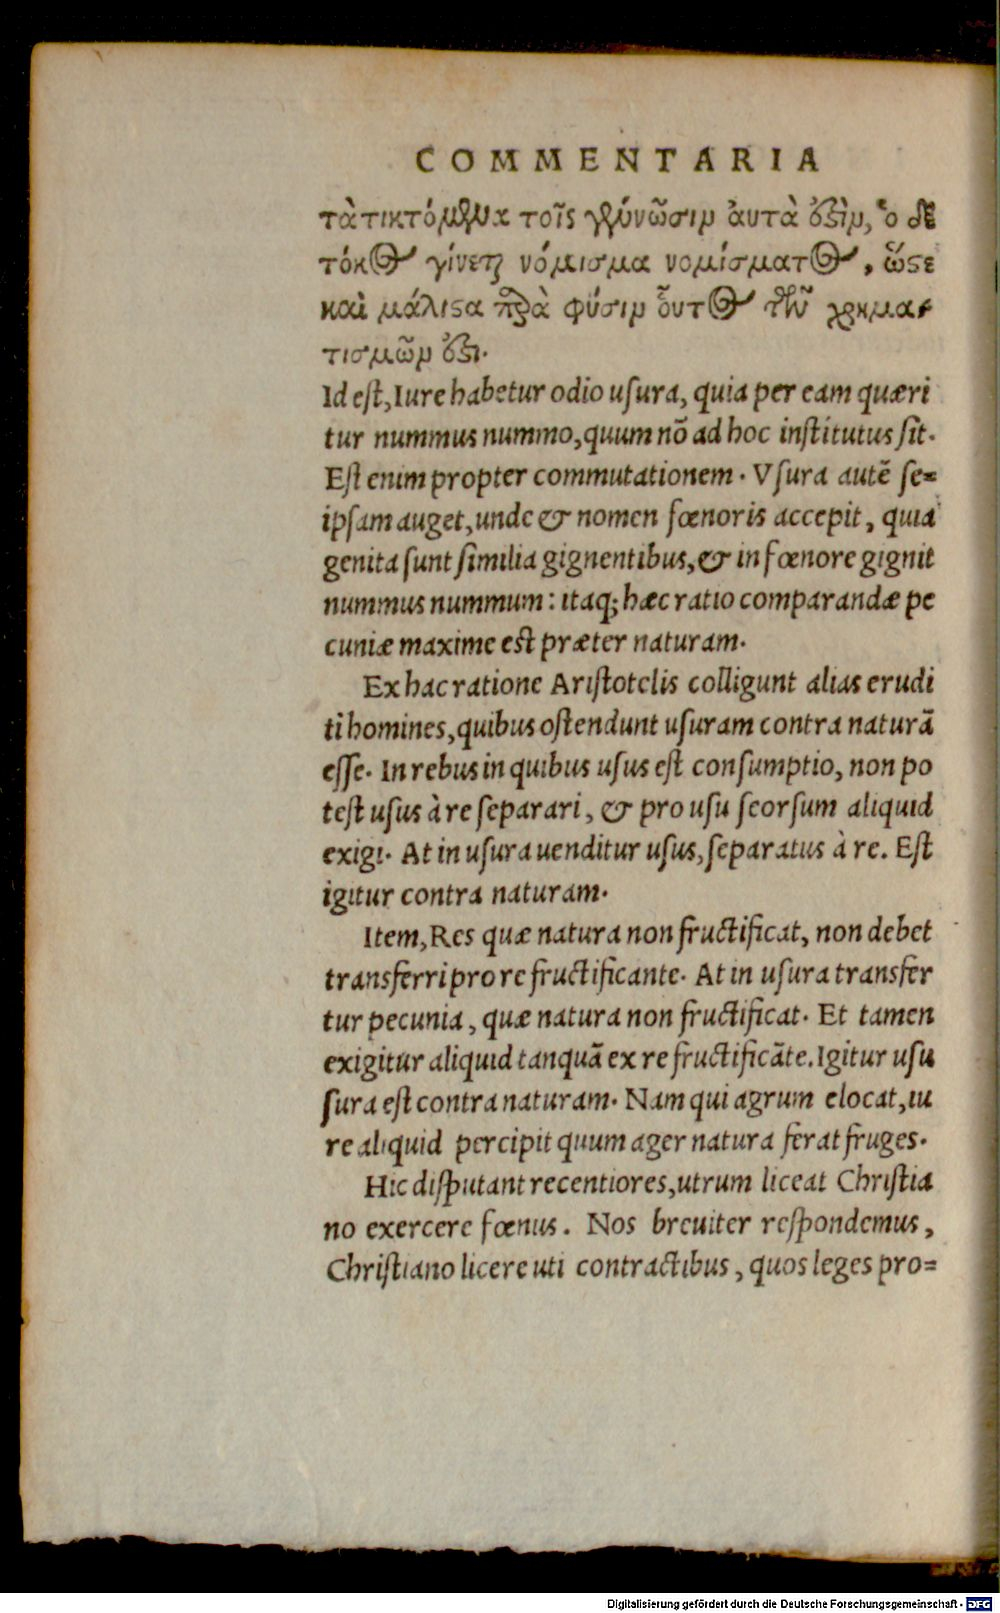 COMMENTARIA
τὰ τικτόμενα τοῖς γεννῶσιν ἀυτὰ ὅξὶν, ὁ δὲ
τόκος γίνεται νόμισμα νομίσματος, ὥςε
καὶ μάλιςα παρὰ φύσιν οὗτος τῶν χρημα-
τισμῶν ὅξι.
Id eſt, Iure habetur odio uſura, quia per eam quæri
tur nummus nummo, quum nō ad hoc inſtitutus ſit.
Eſt enim propter commutationem. Vſura autē ſe=
ipſam auget, unde & nomen fœnoris accepit, quia
genita ſunt ſimilia gignentibus, & in fœnore gignit
nummus nummum: itaq; hæc ratio comparandæ pe
cuniæ maxime eſt præter naturam.
Ex hac ratione Ariſtotelis colligunt alias erudi
ti homines, quibus oſtendunt uſuram contra naturā
eſſe. In rebus in quibus uſus eſt conſumptio, non po
teſt uſus à re ſeparari, & pro uſu ſeorſum aliquid
exigi. At in uſura uenditur uſus, ſeparatus à re. Eſt
igitur contra naturam.
Item, Res quæ natura non fructificat, non debet
transferri pro re fructificante. At in uſura transfer
tur pecunia, quæ natura non fructificat. Et tamen
exigitur aliquid tanquā ex re fructificāte. Igitur uſu
ſura eſt contra naturam. Nam qui agrum elocat, iu
re aliquid percipit quum ager natura ferat fruges.
Hic diſputant recentiores, utrum liceat Chriſtia
no exercere fœnus. Nos breuiter reſpondemus,
Chriſtiano licere uti contractibus, quos leges pro=
Digitalisierung gefördert durch die Deutsche Forschungsgemeinschaft - DFG